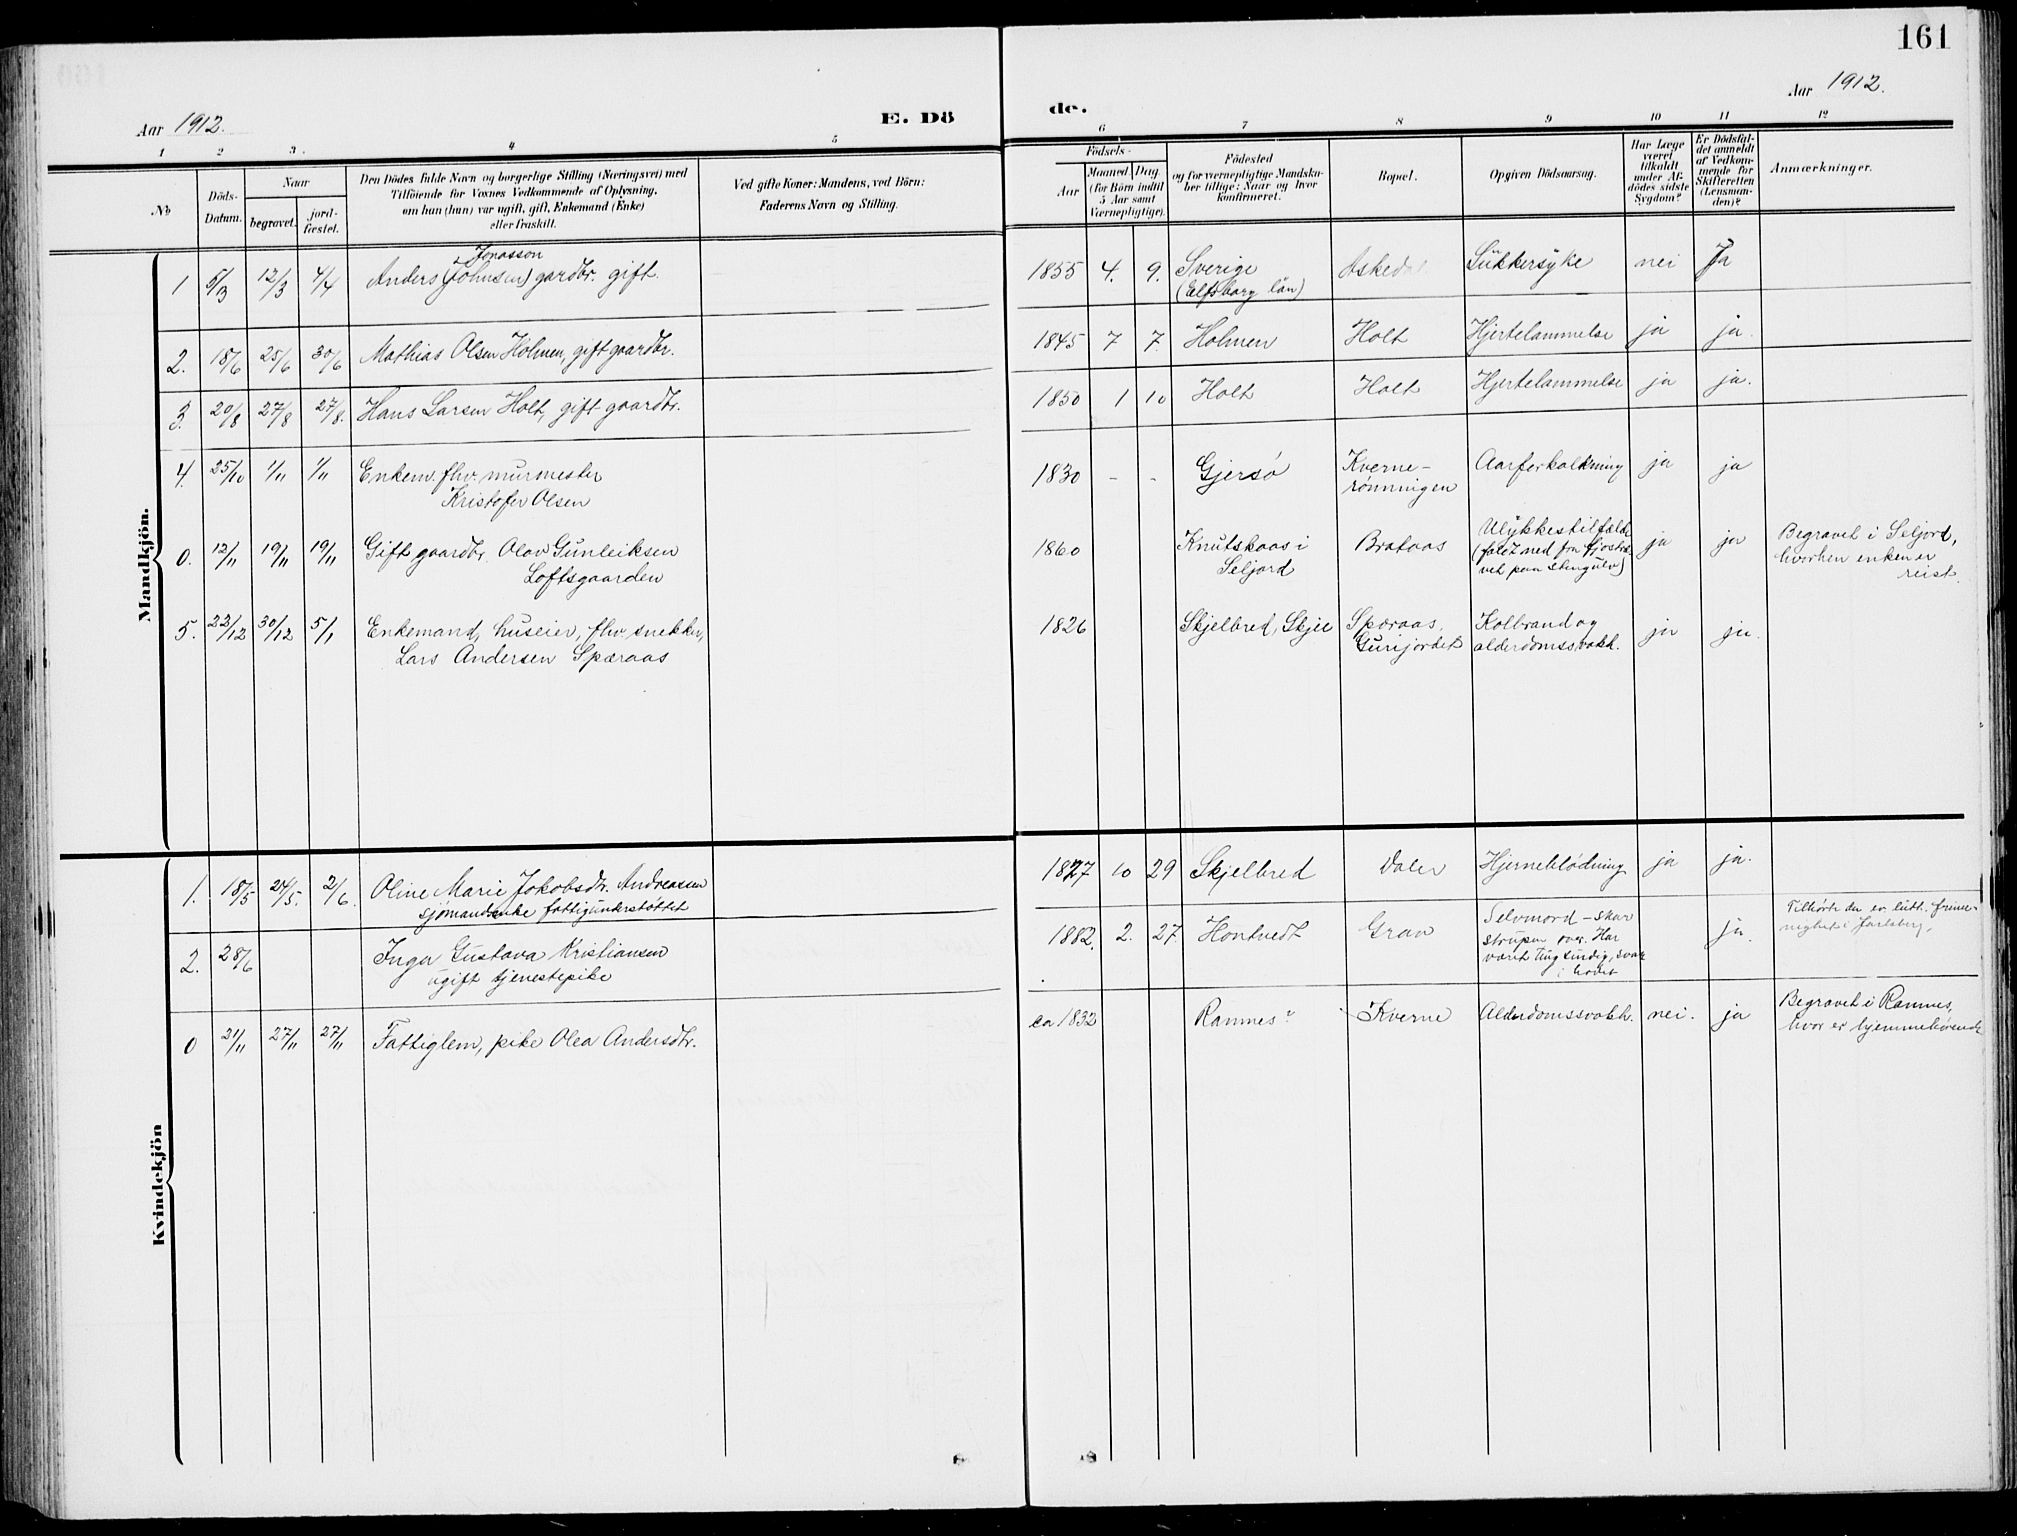 161
Aar 1912.
E. Dö
de.
Aar 1912.
1 2 3. 4 5
6 7 8 9 10 11 12
No
Döds-
Datum.
Naar
begravet.
jord-
fæstet.
Den Dödes fulde Navn og borgerlige Stilling (Næringsvei) med
Tilföiende for Voxnes Vedkommende af Oplysning,
om han (hun) var ugift, gift, Enkemand (Enke)
eller fraskilt.
Ved gifte Koner: Mandens, ved Börn:
Faderens Navn og Stilling.
Födsels-
Aar
Maaned
Dag.
(for Börn indtil
5 Aar samt
Værnepligtige).
Födested
og for værnepligtige Mandska-
ber tillige: Naar og hvor
konfirmeret.
Bopæl.
Opgiven Dödsaarsag.
Har Læge
været
tilkaldt
under Af-
dödes sidste
Sygdom?
Er Dödsfal-
det anmeldt
af Vedkom-
mende for
Skifteretten
(Lensman-
den)?
Anmærkninger.
Mandkjön.
Jonasson
1 5/3 12/3 4/4 Anders (Johnsen) gardbr. gift. 1855 4. 9. Sverige Askedal Sukkersyke nei Ja
(Elfsborg län)
2. 18/6 25/6 30/6 Mathias Olsen Holmen, gift gaardbr. 1845 7 7. Holmen Holt Hjertelammelse ja ja.
3. 20/8 27/8 27/8. Hans Larsen Holt, gift gaardbr. 1850 1 10 Holt Holt Hjertelammelse ja ja.
4. 25/10 1/11 1/11 Enkem. fhv. murmester 1830 - - Gjersö Kverne- Aarforkalkning ja ja
Kristofer Olsen rönningen
0. 12/11 19/11 19/11 Gift gaardbr. Olav Gunleiksen 1860 Knutskaas i Brataas Ulykkestilfælde ja ja Begravet i Seljord,
Loftsgaarden Seljord (faldt ned fra hvorhen enken er
vet paa stengulv) reist.
5. 22/12 30/12 5/1 Enkemand, huseier, fhv. snekker, 1826 Skjelbred, Skjee Spæraas, Kolbrand og ja ja.
Lars Andersen Spæraas Gurijordet alderdomssvakh.
Kvindekjön
1. 18/5 24/5. 2/6. Oline Marie Jakobsdtr. Andreassen 1827 10 29 Skjelbred Daler Hjerneblödning ja ja.
sjömandsenke fattigunderstöttet
2. 28/6 Inga Gustava Kristiansen 1882. 2. 27. Hontvedt Gran Selvmord - skar ja. Tilhörte den ev. luth. frime-
ugift tjenestepike strupen over. Har nighet i Jarlsberg.
været tungsindig, svak
i hodet
0 21/11 27/11 27/11 Fattiglem, pike Olea Andersdtr. ca 1832 Ramnes? Kverne Alderdomssvakh. nei. ja Begravet i Ramnes,
hvor er hjemmehörende